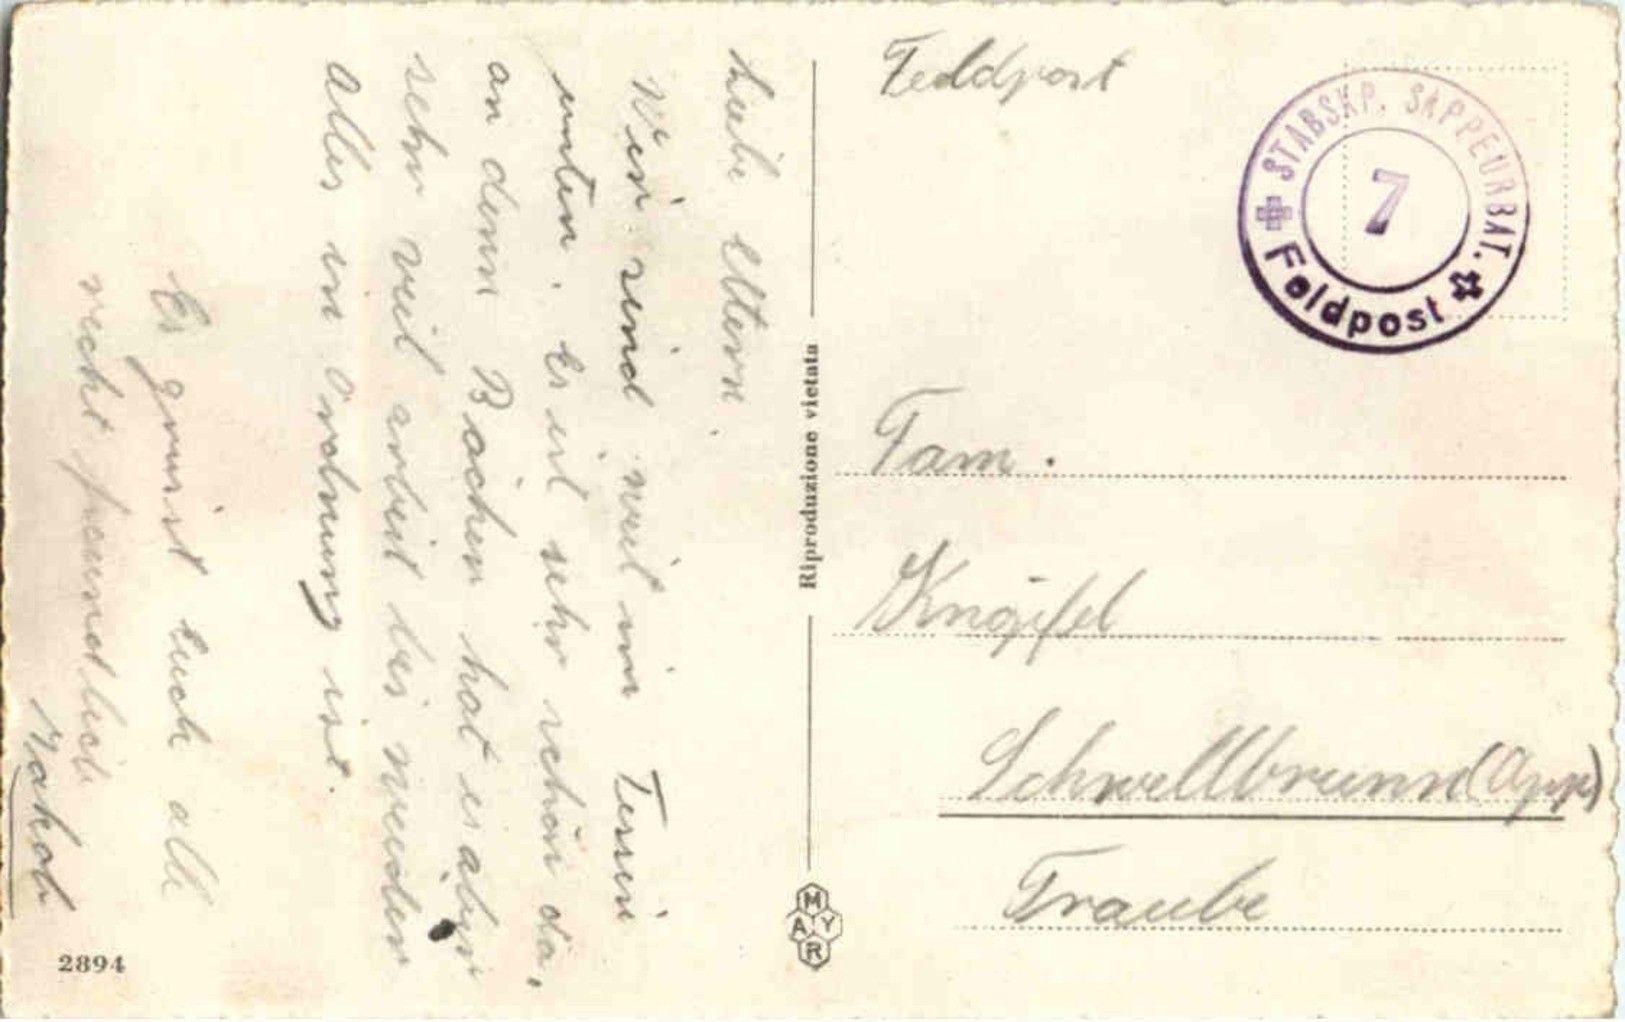 Liebe Eltern.
Wir sind weit im Tessin
unten. Es ist sehr schön da,
an denn Bächen hat es aber
sehr veil arbeit bis weiden
alles in Ordnung ist.
Es grüsst Euch all
recht freundlich
Jakob
2894
Riproduzione vietata
MAYR
Feldpost
STABSKP. SAPPEURBAT.
7
Feldpost
Fam.
Knöpfel
Schwellbrunn (App)
Traube